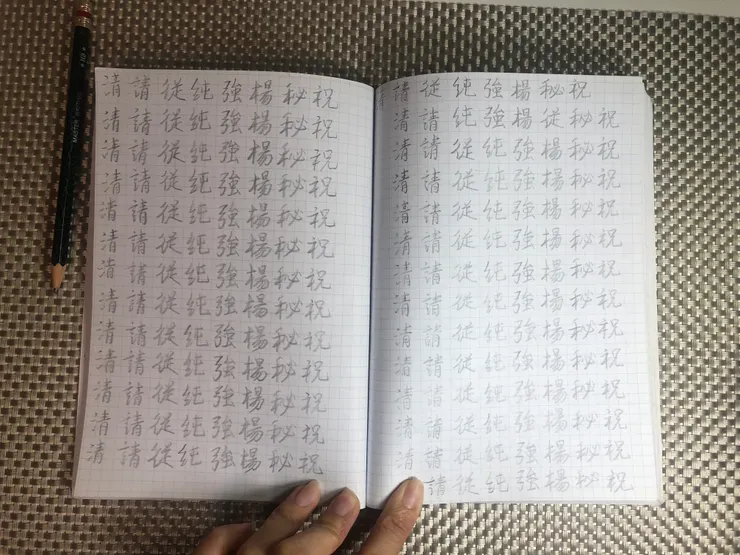 清請従純強楊秘祝
清請従純強楊秘祝
清請従純強楊秘祝
清請従純強楊秘祝
清請従純強楊秘祝
清請従純強楊秘祝
清請従純強楊秘祝
清請従純強楊秘祝
清請従純強楊秘祝
清請従純強楊秘祝
清請従純強楊秘祝
清請従純強楊秘祝
清請従純強楊秘祝
清請従純強楊秘祝
清請純強楊従秘祝
清請従純強楊秘祝
清請従純強楊秘祝
清請従純強楊秘祝
清請従純強楊秘祝
清請従純強楊秘祝
清請従純強楊秘祝
清請従純強楊秘祝
清請従純強楊秘祝
清請従純強楊秘祝
清請従純強楊秘祝
清請従純強楊秘祝
請従純強楊秘祝